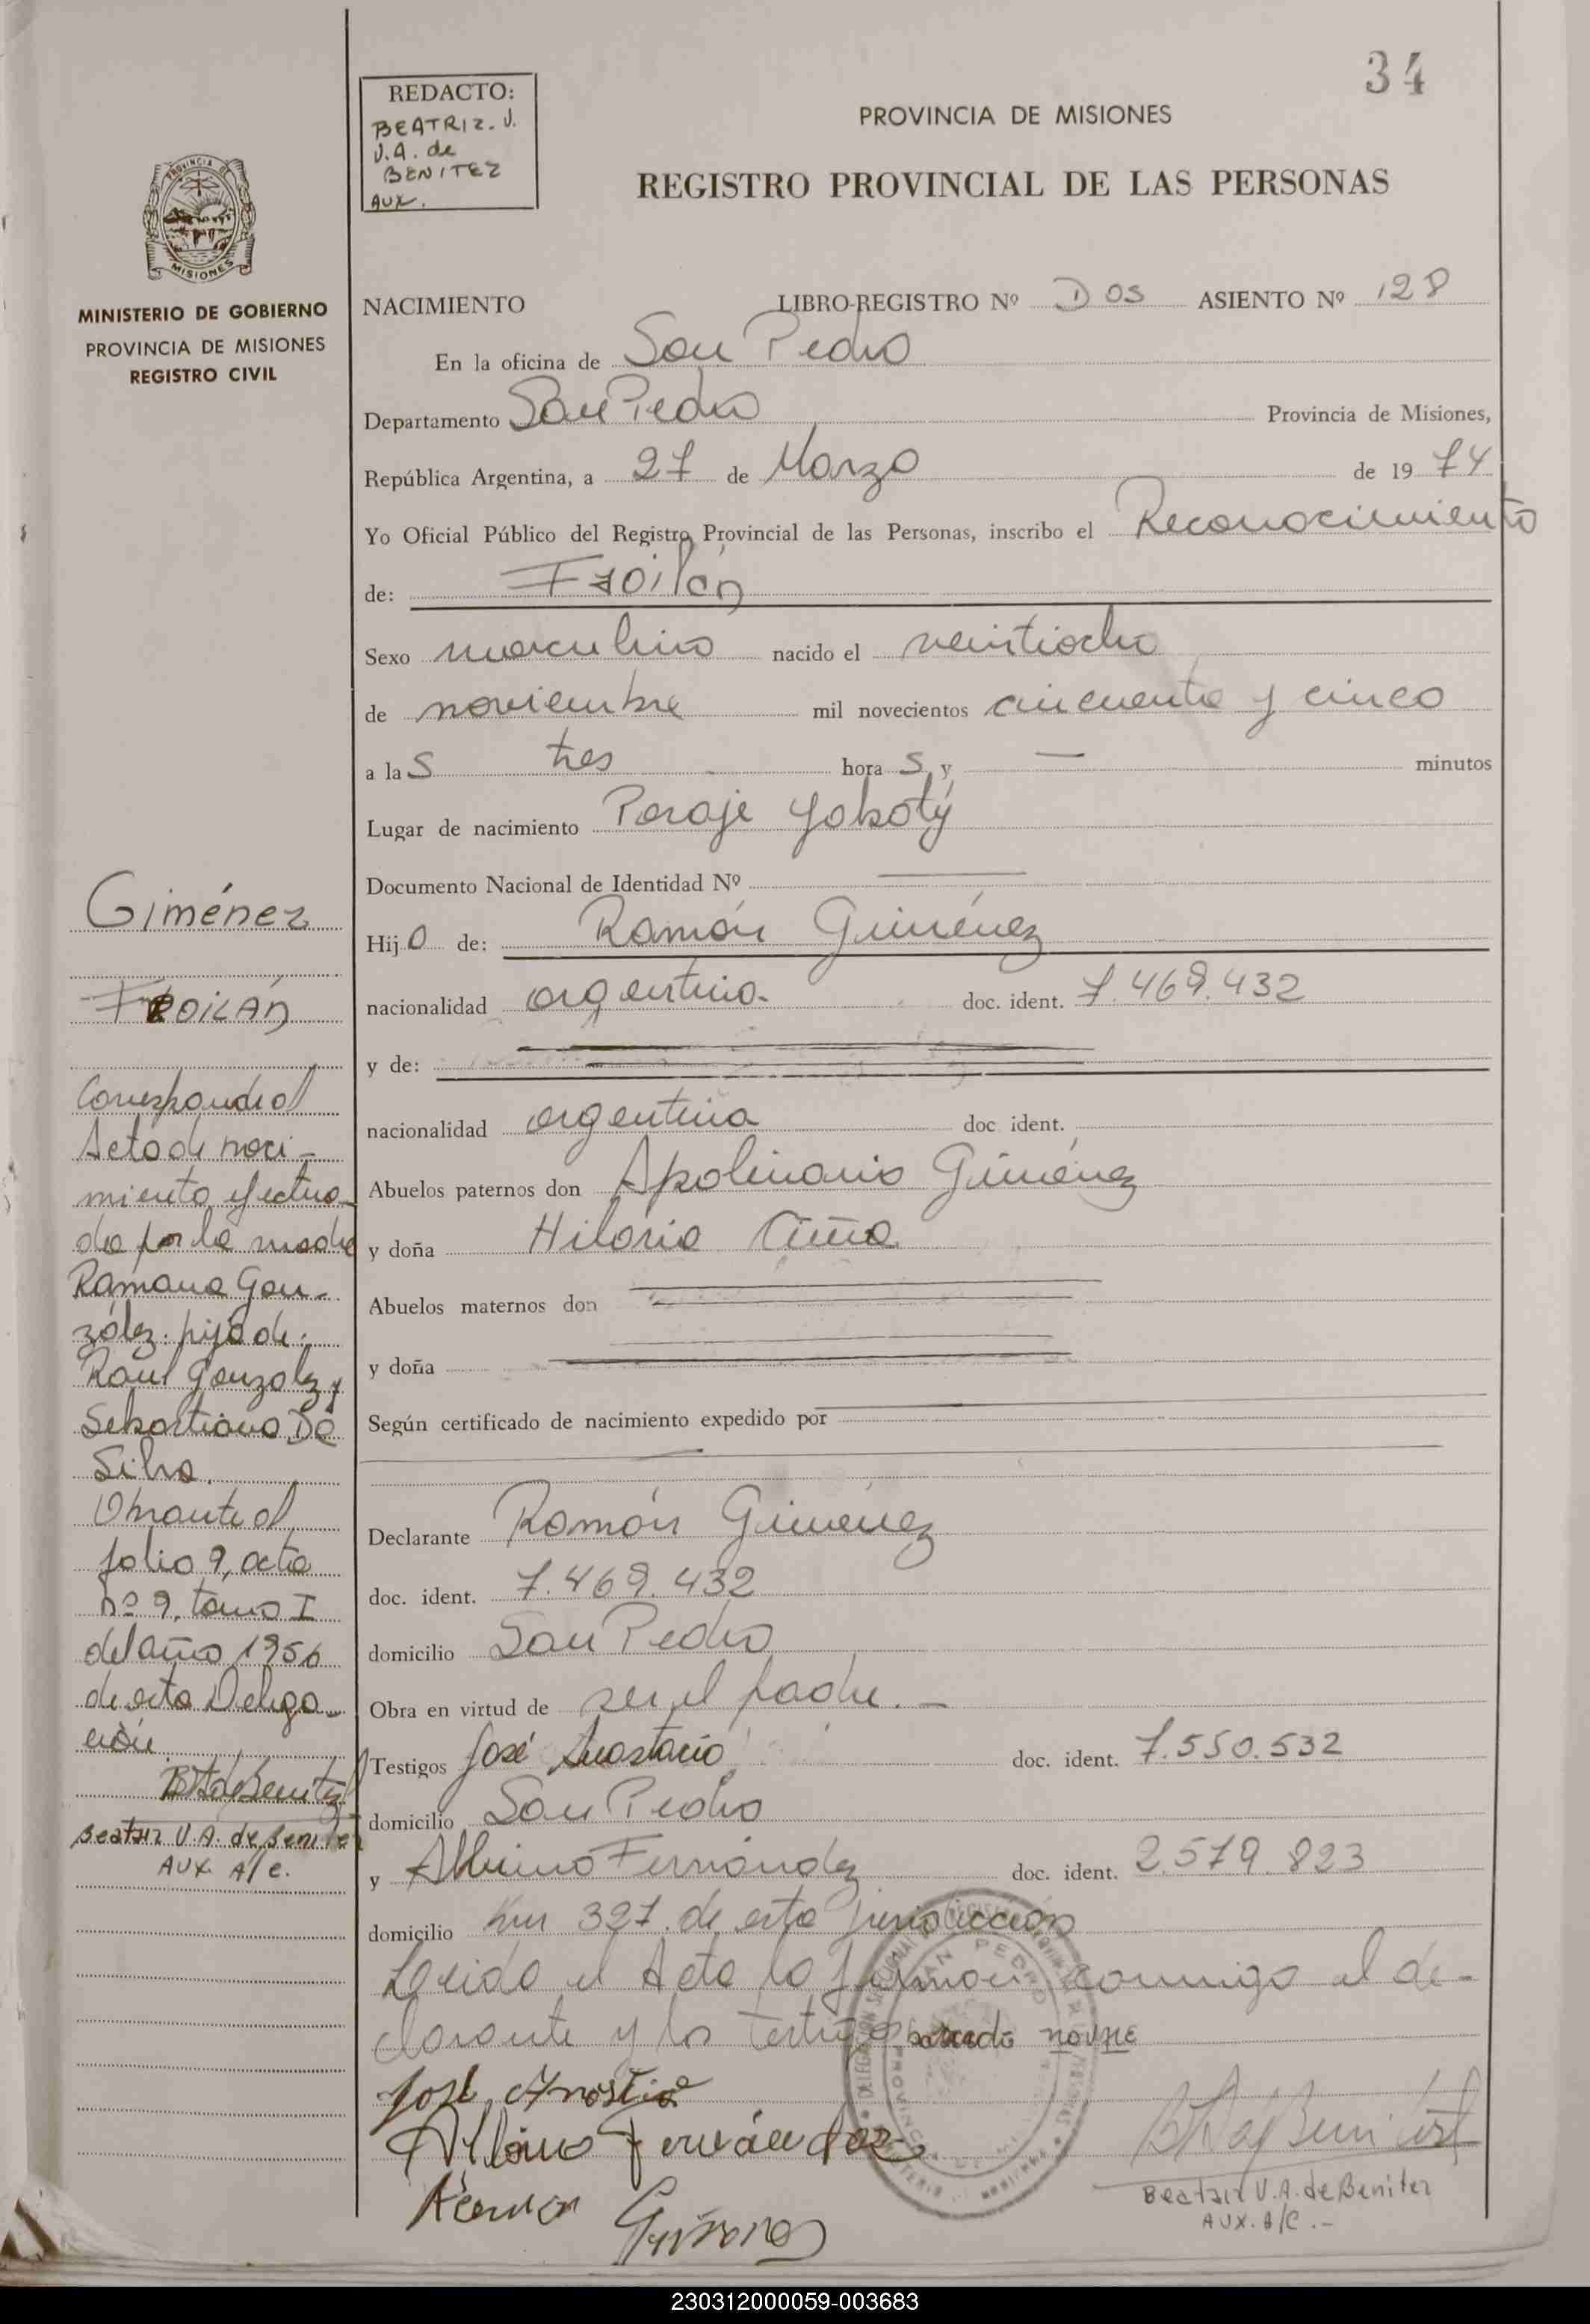 34
REDACTO:
BEATRIZ. V.
V.A. de
BENITEZ
AUX.
PROVINCIA DE MISIONES
REGISTRO PROVINCIAL DE LAS PERSONAS
MISIONES
MINISTERIO DE GOBIERNO
PROVINCIA DE MISIONES
REGISTRO CIVIL
NACIMIENTO LIBRO-REGISTRO Nº Dos ASIENTO Nº 128
En la oficina de San Pedro
Departamento San Pedro Provincia de Misiones,
República Argentina, a 27 de Marzo de 19 74
Yo Oficial Público del Registro Provincial de las Personas, inscribo el Reconocimiento
de: Froilán
Sexo masculino nacido el veintiocho
de noviembre mil novecientos cincuenta y cinco
a la s tres hora s y — minutos
Lugar de nacimiento Paraje Yabotý
Documento Nacional de Identidad Nº
Hij o de: Ramón Giménez
nacionalidad argentina. doc. ident. 7.469.432
y de:
nacionalidad argentina doc. ident.
Abuelos paternos don Apolinario Giménez
y doña Hilaria
Abuelos maternos don
y doña
Según certificado de nacimiento expedido por
Declarante Ramón Giménez
doc. ident. 7.469.432
domicilio San Pedro
Obra en virtud de ser el padre. —
Testigos José Anastacio doc. ident. 7.550.532
domicilio San Pedro
y Albino Fernández doc. ident. 2.579.823
domicilio km 327 de esta jurisdicción
Leída el Acta la firman conmigo el de-
clarante y los testigos
José
Albino Fernández
Ramón Giménez
Beatriz V.A. de Benitez
AUX. A/C.-
Giménez
FROILÁN
Corresponde al
Acta de naci-
miento efectua-
da por la madre
Ramona Gon-
zález. hija de:
Raul Gonzalez y
Sebastiana Da
Silva.
Obrante al
folio 9, acta
nº 9, tomo I
del año 1956
de esta Delega-
ción.
Beatriz V.A. de Benitez
AUX A/C.
230312000059-003683